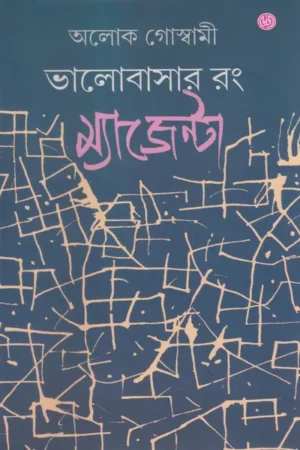 অলোক গোস্বামী
ভালোবাসার রং
ম্যাজেন্টা